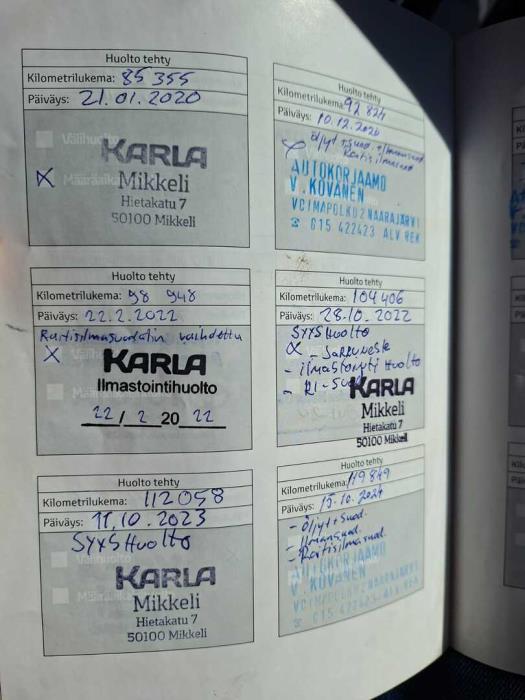 Huolto tehty
Kilometrilukema: 85 355
Päiväys: 21.01.2020
Välihuolto
KARLA
Mikkeli
Hietakatu 7
50100 Mikkeli
Huolto tehty
Kilometrilukema: 92 824
Päiväys: 10.12.2020
Öljyt + suod. + ilmansuod
Raitisilmasuod
AUTOKORJAAMO
V. KOVANEN
VOIMAPOLKU 2 NAARAJÄRVI
☎ 015 422423 ALV REK
Huolto tehty
Kilometrilukema: 98 948
Päiväys: 22.2.2022
Raitisilmasuodatin vaihdettu
X
KARLA
Ilmastointihuolto
22 / 2 20 22
Huolto tehty
Kilometrilukema: 104 406
Päiväys: 28.10.2022
SYYSHuolto
- JARRUNESTE
- ilmastointi Huolto
- RI-Suod
KARLA
Mikkeli
Hietakatu 7
50100 Mikkeli
Huolto tehty
Kilometrilukema: 112 058
Päiväys: 11.10.2023
SYYSHuolto
KARLA
Mikkeli
Hietakatu 7
50100 Mikkeli
Huolto tehty
Kilometrilukema: 119 849
Päiväys: 15.10.2024
- Öljyt + Suod.
- Ilmansuod.
- Raitisilmasuod.
AUTOKORJAAMO
V. KOVANEN
VOIMAPOLKU 2 NAARAJÄRVI
☎ 015 422423 ALV REK